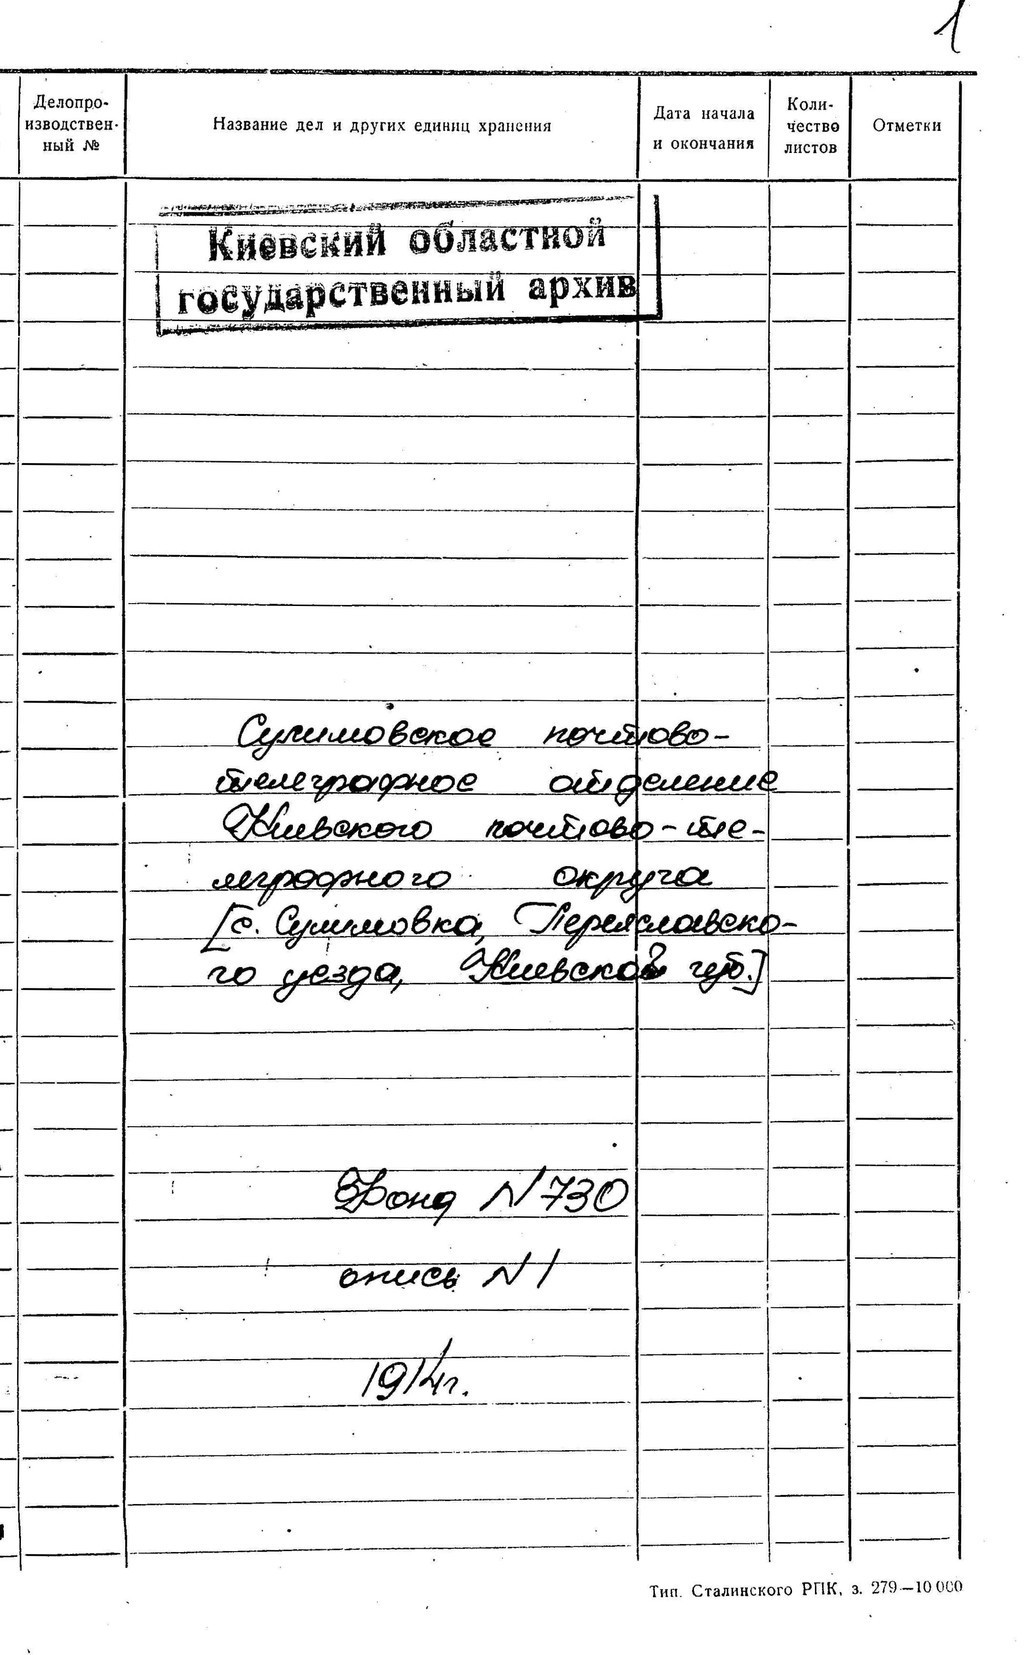 1
Делопро-
изводствен-
ный №
Название дел и других единиц хранения
Дата начала
и окончания
Коли-
чество
листов
Отметки
Киевский областной
государственный архив
Сулимовское почтово-
телеграфное отделение
Киевского почтово-те-
леграфного округа
[с. Сулимовка, Переяславско-
го уезда, Киевской губ.]
Фонд N 730
опись N 1
1914г.
Тип. Сталинского РПК, з. 279—10 000